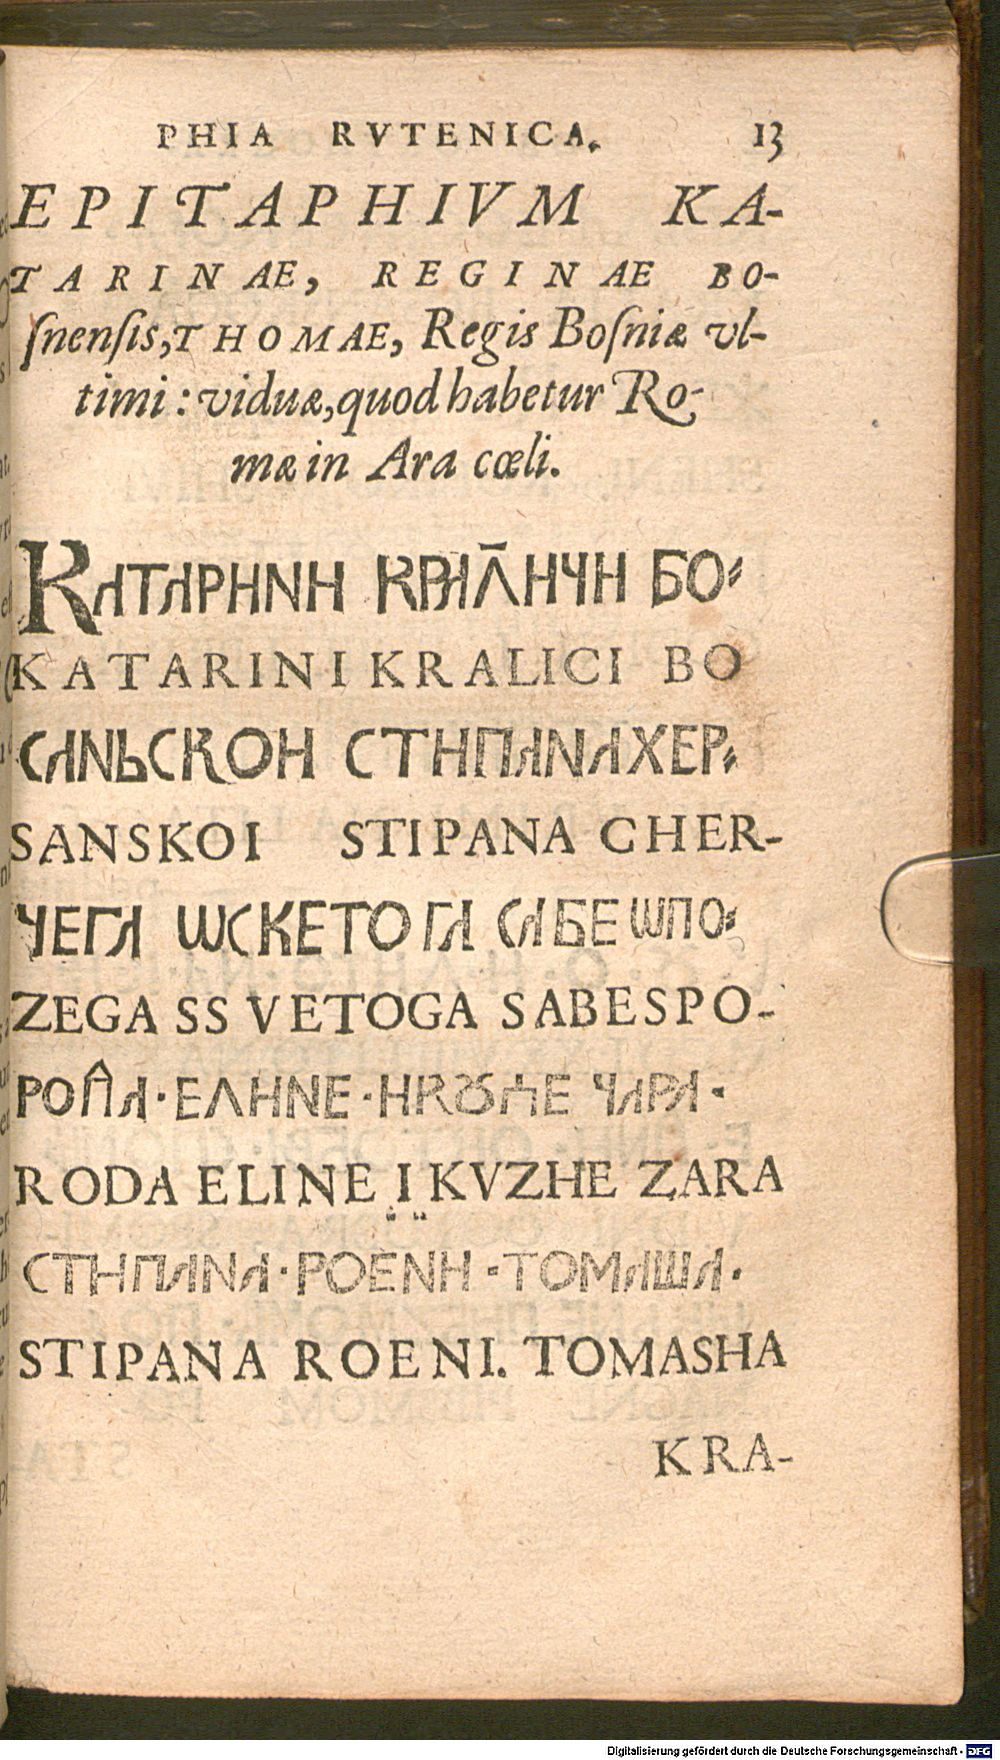 PHIA RVTENICA. 13
EPITAPHIVM KA-
TARINAE, REGINAE BO-
ſnenſis, THOMAE, Regis Boſniæ vl-
timi: viduæ, quod habetur Ro-
mæ in Ara cœli.
КАТАРНNН КРАЛ̄НЧН БО-
KATARINI KRALICI BO
САNЬСКОН СТНПАNА ХЕР-
SANSKOI STIPANA CHER-
ЧЕГА ѠСКЕТОГА САБЕ ѠПО-
ZEGA SS VETOGA SABESPO-
РОП̂А · ЕЛНNЕ · НКꙊЦЕ ЧАРА ·
RODA ELINE I KVZHE ZARA
СТНПАNА · РОЕNН · ТОМАША ·
STIPANA ROENI. TOMASHA
KRA-
Digitalisierung gefördert durch die Deutsche Forschungsgemeinschaft - DFG